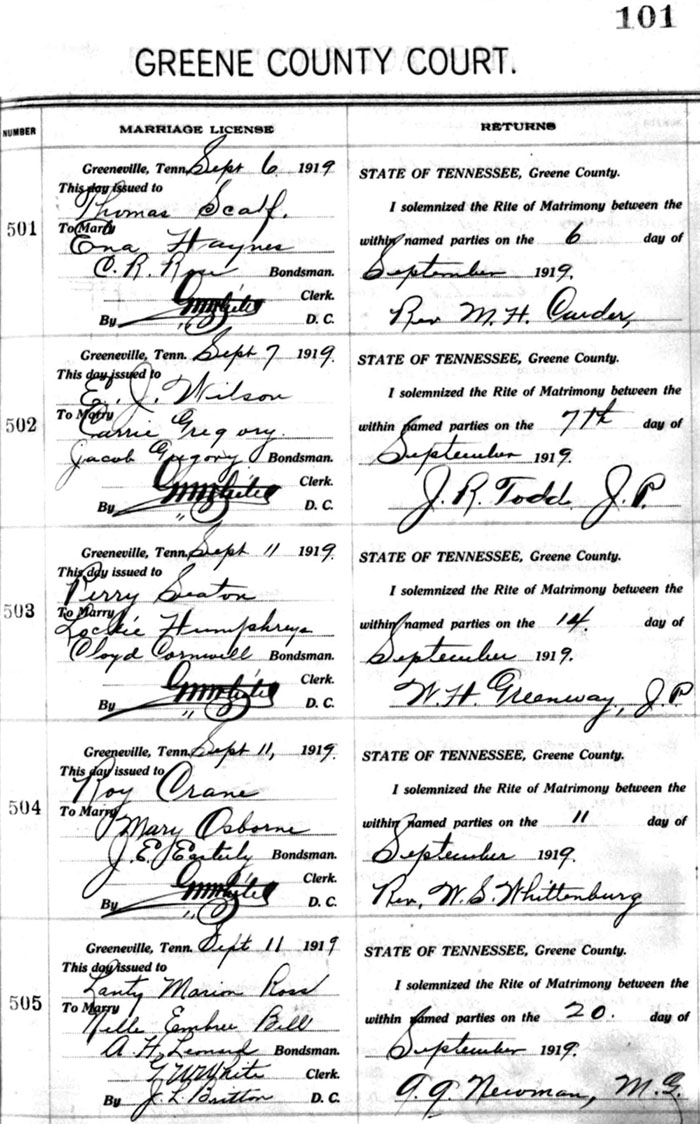 101
GREENE COUNTY COURT.
NUMBER
MARRIAGE LICENSE
RETURNS
501
Greeneville, Tenn. Sept 6 1919
This day issued to
Thomas Scalf.
To Marry
Ena Haynes
C. R. Rose Bondsman.
Clerk.
By " D. C.
STATE OF TENNESSEE, Greene County.
I solemnized the Rite of Matrimony between the
within named parties on the 6 day of
September 1919.
Rev M. H. Carder,
502
Greeneville, Tenn. Sept 7 1919.
This day issued to
E. J. Wilson
To Marry
Carrie Gregory.
Jacob Gregory Bondsman.
Clerk.
By " D. C.
STATE OF TENNESSEE, Greene County.
I solemnized the Rite of Matrimony between the
within named parties on the 7th day of
September 1919.
J. R. Todd J. P.
503
Greeneville, Tenn. Sept 11 1919.
This day issued to
Perry Seaton
To Marry
Lockie Humphreys
Cloyd Cornwell Bondsman.
Clerk.
By " D. C.
STATE OF TENNESSEE, Greene County.
I solemnized the Rite of Matrimony between the
within named parties on the 14. day of
September 1919.
W. H. Greenway, J. P.
504
Greeneville, Tenn. Sept 11, 1919.
This day issued to
Roy Crane
To Marry
Mary Osborne
J. E. Easterly Bondsman.
Clerk.
By " D. C.
STATE OF TENNESSEE, Greene County.
I solemnized the Rite of Matrimony between the
within named parties on the 11 day of
September 1919.
Rev. W. S. Whittenburg
505
Greeneville, Tenn. Sept 11 1919
This day issued to
Lanty Marion Ross
To Marry
Nelle Embree Bell
A. H. Leonard Bondsman.
White Clerk.
By J. L. Britton D. C.
STATE OF TENNESSEE, Greene County.
I solemnized the Rite of Matrimony between the
within named parties on the 20. day of
September 1919.
Newman, M. G.